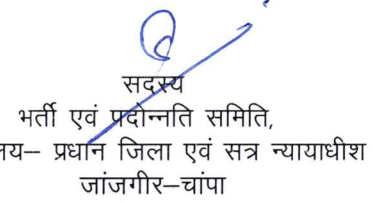 सदस्य
भर्ती एवं पदोन्नति समिति,
लय– प्रधान जिला एवं सत्र न्यायाधीश
जांजगीर–चांपा